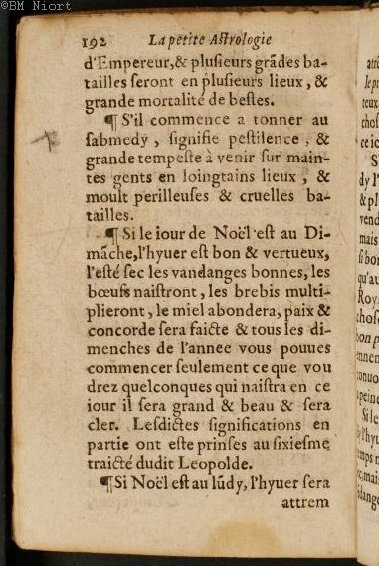 ©BM Niort
192 La petite Aſtrologie
d'Empereur,& pluſieurs grãdes ba-
tailles ſeront en pluſieurs lieux, &
grande mortalité de beſtes.
¶ S'il commence a tonner au
ſabmedy, ſignifie peſtilence, &
grande tempeſte à venir ſur main-
tes gents en loingtains lieux, &
moult perilleuſes & cruelles ba-
tailles.
¶ Si le iour de Noël eſt au Di-
mãche, l'hyuer eſt bon & vertueux,
l'eſté ſec les vandanges bonnes, les
bœufs naiſtront, les brebis multi-
plieront, le miel abondera, paix &
concorde ſera faicte & tous les di-
menches de l'annee vous pouues
commencer ſeulement ce que vou
drez quelconques qui naiſtra en ce
iour il ſera grand & beau & ſera
cler. Leſdictes ſignifications en
partie ont eſte prinſes au ſixieſme
traicté dudit Leopolde.
¶ Si Noël eſt au lũdy, l'hyuer ſera
attrem